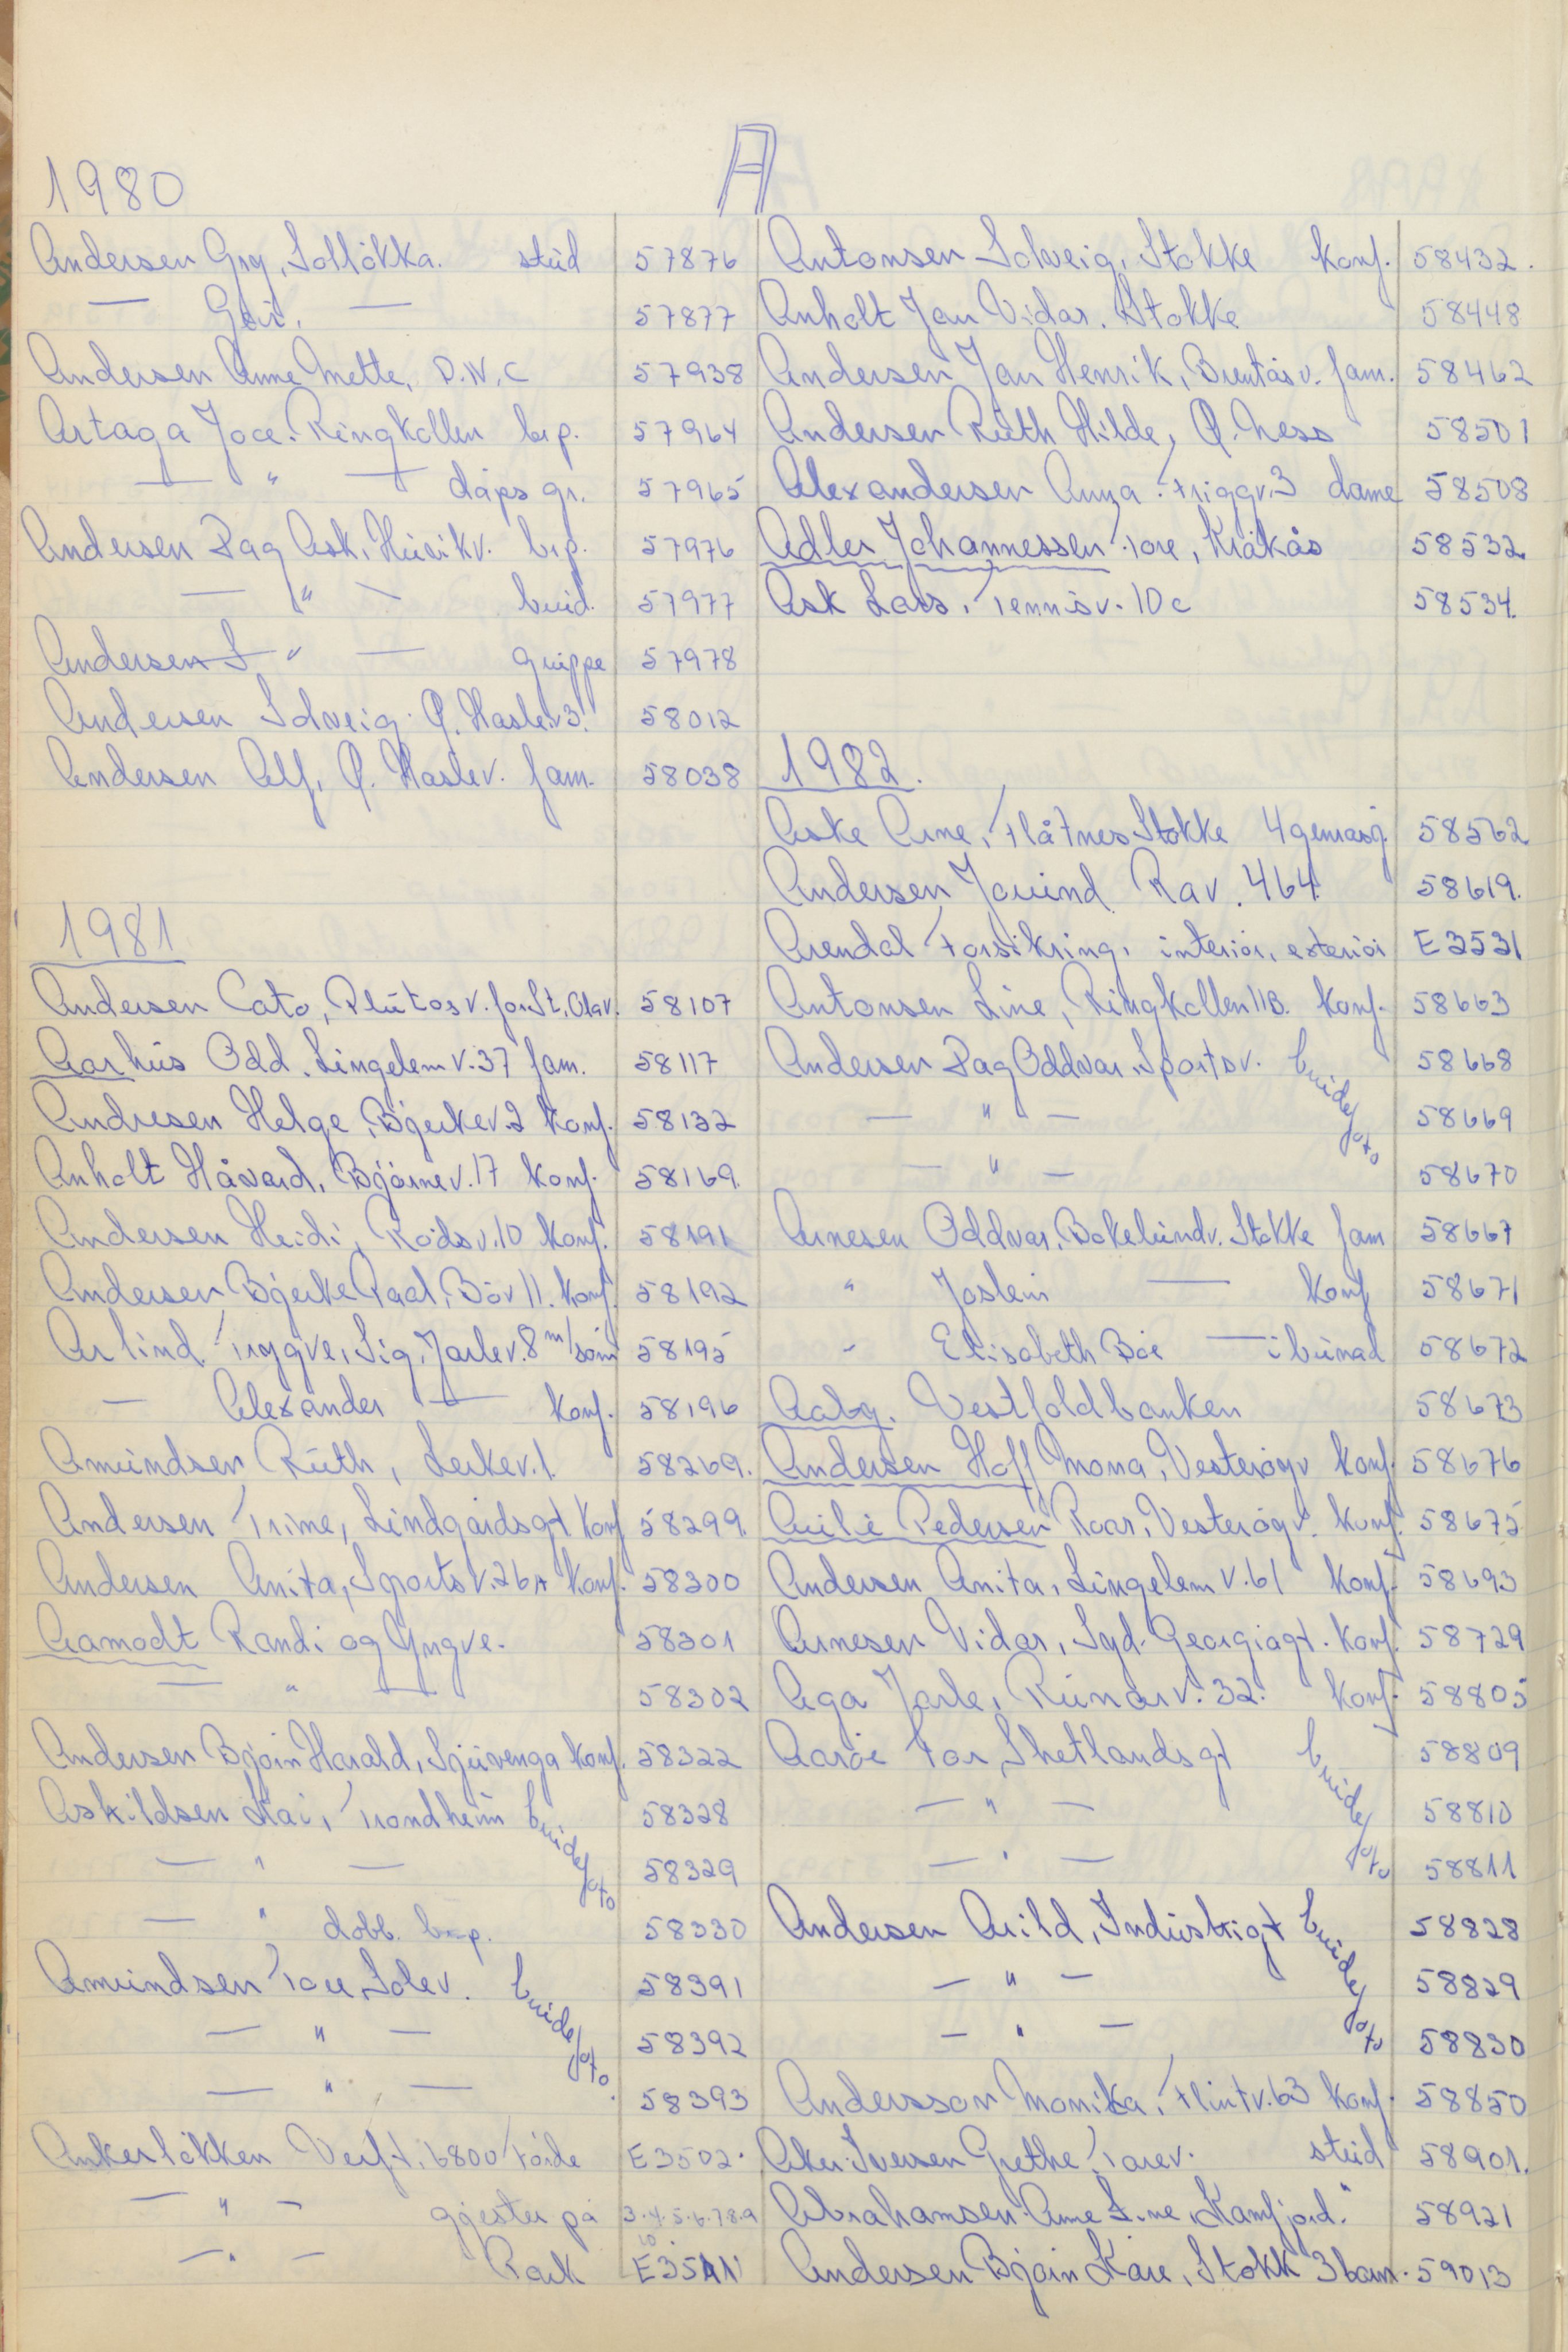 A
1980
Andersen Gry, Solløkka. stud 57876
— Geir. — 57877
Andersen Anne Mette, D.N.C 57938
Artaga Joce. Ringkollen brp. 57964
— " — dåps gr. 57965
Andersen Dag Ask. Husikv. brp. 57976
— " — brud. 57977
Andersen " — gruppe 57978
Andersen Solveig. Ø. Haslev 3. 58012
Andersen Alf, Ø. Haslev. fam. 58038
1981
Andersen Cato, Plutosv. for St. Olav. 58107
Aarhus Odd. Lingelemv. 37 fam. 58117
Andresen Helge, Bjerkev. 2 konf. 58132
Anholt Håvard, Bjørnev. 17 konf. 58169.
Andersen Heidi, Rødsv. 10 konf. 58191
Andersen Bjerke Paal, Bøv 11. konf. 58192
Arlind Trygve, Sig. Jarlev. 8 m/sønn 58195
— Alexander — konf. 58196
Amundsen Ruth, Lerkev. 1. 58269.
Andersen Trine, Lindgårdsgt konf 58299.
Andersen Anita, Sportsv. 26A konf. 58300
Aamodt Randi og Yngve. 58301
— " — 58302
Andersen Bjørn Harald, Sjuvenga konf. 58322
Askildsen Kai, Trondheim brudefoto 58328
— " — 58329
— " dobb. brp. 58330
Amundsen Tore, Solev. brudefoto. 58391
— " — 58392
— " — 58393
Ankerløkken Verft, 6800 Førde E3502.
— " — gjester på 3.4.5.6.7.8.9 10
— " — Rack E3511
Antonsen Solveig, Stokke konf. 58432.
Anholt Jan Vidar. Stokke 58448
Andersen Jan Henrik, Bruntåsv. fam. 58462
Andersen Ruth Hilde, Ø. Ness 58501
Alexandersen Anna. Friggv. 3 dame 58508
Adler Johannessen Tore, Kråkås 58532.
Ask Lars, Tennisv. 10c 58534.
1982.
Aske Arne, Flåtnes Stokke 4 58562
Andersen Jouind Rav. 464 58619.
Arendal Forsikring, interiør, exteriør E3531
Antonsen Line, Ringkollen 11B. konf. 58663
Andersen Dag Oddvar. Sportsv. brudefoto 58668
— " — 58669
— " — 58670
Arnesen Oddvar, Bokelundv. Stokke fam 58667
" Jostein — konf 58671
" Elisabeth Bøe — i bunad 58672
Aabg. Vestfoldbanken 58673
Andersen Hoff Mona, Vesterøyv konf. 58676
Aulie Pedersen Roar, Vesterøyv. konf. 58675
Andersen Anita, Lingelemv. 61 konf. 58693
Arnesen Vidar, Syd-Georgiagt. konf. 58729
Aga Jarle, Runarv. 32. konf. 58805
Aarøe Tor, Shetlandsgt brudefoto 58809
— " — 58810
— " — 58811
Andersen Arild, Industrigt brudefoto 58828
— " — 58829
— " — 58830
Andersson Monika, Flintv. 63 konf. 58850
Aker Iversen Grethe, Torev. stud 58901.
Abrahamsen Anne Line "Kamfjord." 58921
Andersen Bjørn Kåre, Stokk 3 barn. 59013